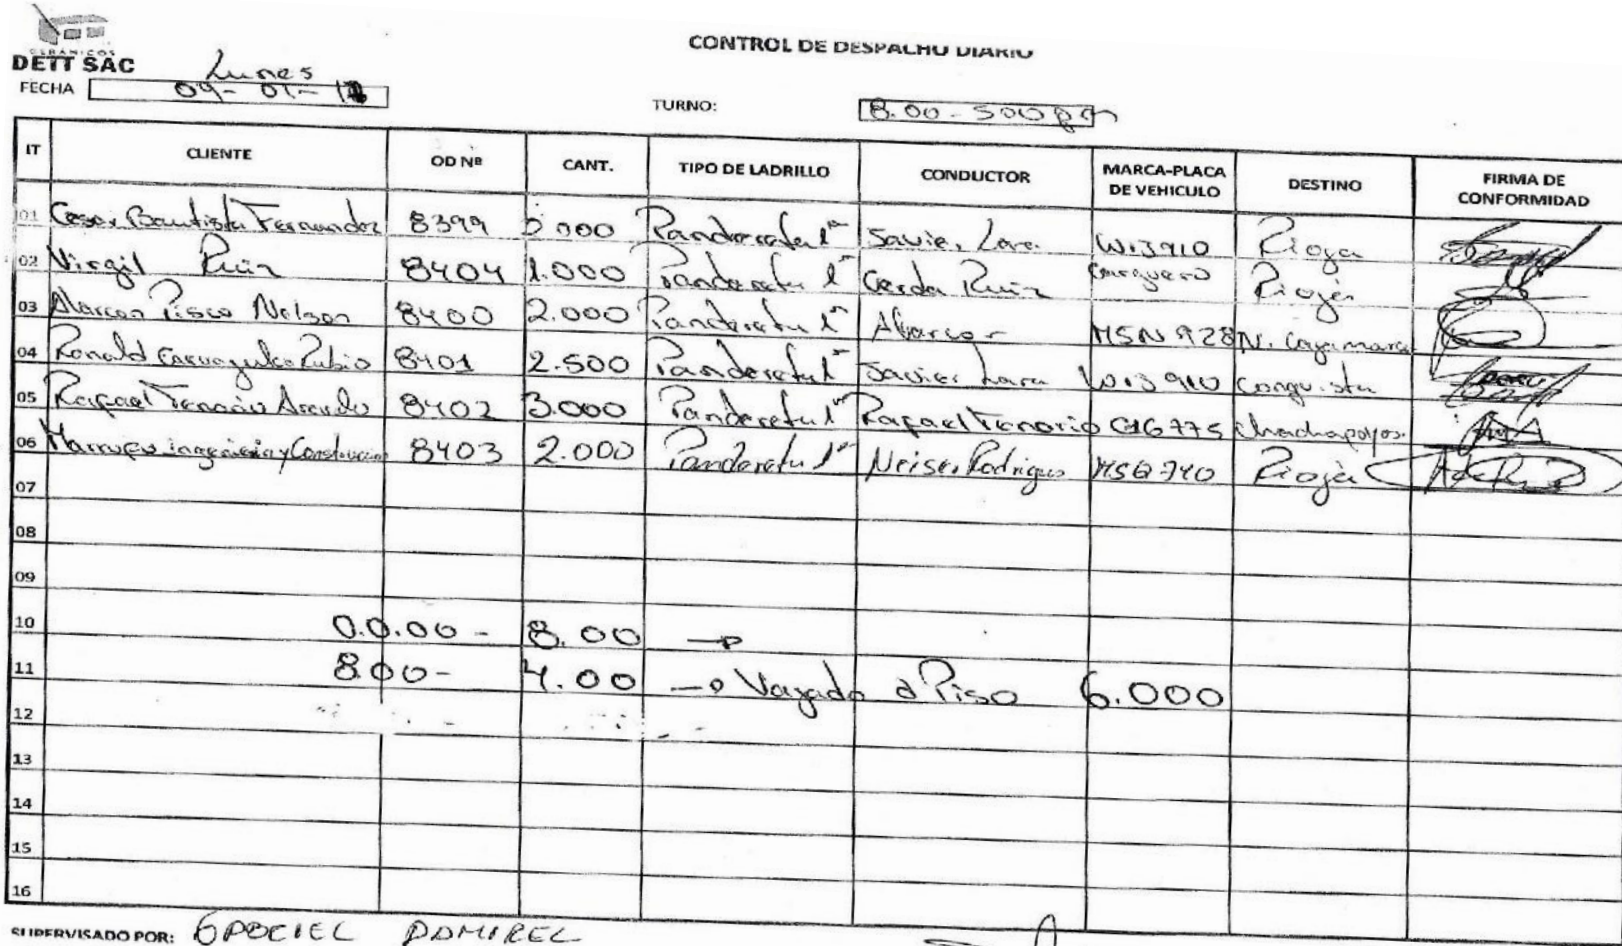 CERAMICOS
DETT SAC
CONTROL DE DESPACHO DIARIO
Lunes
FECHA 09-01-
TURNO: 8.00 - 5:00 pm
IT CLIENTE OD Nº CANT. TIPO DE LADRILLO CONDUCTOR MARCA-PLACA DE VEHICULO DESTINO FIRMA DE CONFORMIDAD
01 Cesar Bautista Fernandez 8399 000 Pandereta 1ª Javier Lara W13910 Rioja
02 Virgil Ruiz 8404 1.000 Pandereta 1ª Cerda Ruiz Carguero Rioja
03 Alarcon Pisco Nelson 8400 2.000 Pandereta 1ª Alarcon M5N 928 N. Cajamarca
04 Ronald Rubio 8401 2.500 Pandereta 1ª Javier Lara W13910 Conquista
05 Rafael Tenorio 8402 3.000 Pandereta 1ª Rafael Tenorio 775 Chachapoyas
06 ingenieria y Construccion 8403 2.000 Pandereta 1ª Neiser Rodriguez 740 Rioja
07
08
09
10 0.0.00 - 8.00 →
11 8.00 - 4.00 → a Piso 6.000
12
13
14
15
16
SUPERVISADO POR: